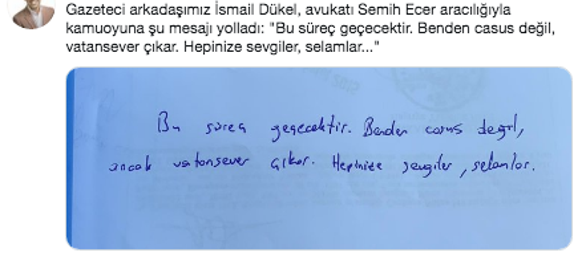 Gazeteci arkadaşımız İsmail Dükel, avukatı Semih Ecer aracılığıyla
kamuoyuna şu mesajı yolladı: "Bu süreç geçecektir. Benden casus değil,
vatansever çıkar. Hepinize sevgiler, selamlar..."
Bu süreç geçecektir. Benden casus değil,
ancak vatansever çıkar. Hepinize sevgiler, selamlar.